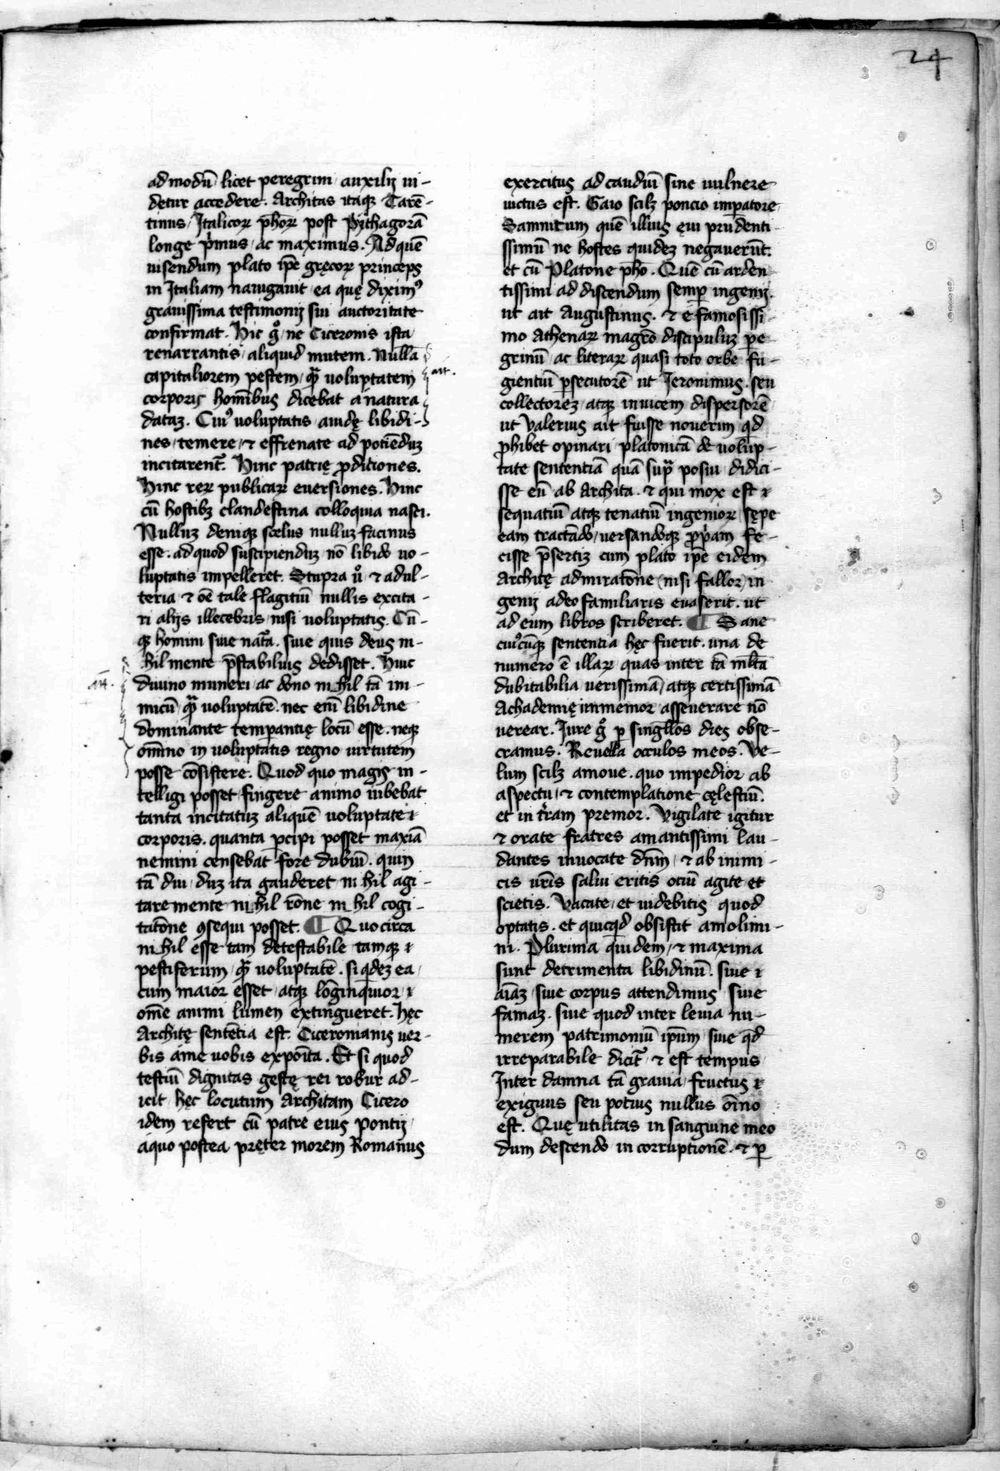 24
ad modũ licet peregrini auxilij ui-
detur accedere. Architas itaqꝫ Tarē-
tinus, Italicoꝝ ph̄oꝝ post Pythagorā
longe p̄imus ac maximus. Ad quē
uisendum plato ip̄e gręcoꝝ princeps
in Italiam nauigauit, ea quę diximꝰ
grauissima testimonij sui auctoritate
confirmat. Hic gͦ, ne Ciceronis ista
renarrantis aliquid mutem. Nullā
art.
capitaliorem pestem, qͣ̄ uoluptatem
corporis hom̄ibus dicebat a natura
dataꝫ. Cuiꝰ uoluptatis auidę libidi-
nes, temere, ⁊ effrenate ad potiēduꝫ
incitarent᷑. Hinc patrię ꝓditiones.
Hinc reꝝ publicaꝝ euersiones. Hinc
cū hostibꝫ clandestina colloquia nasci.
Nulluꝫ deniqꝫ scelus nulluꝫ facinus
esse. ad quod suscipienduꝫ nō libido uo-
luptatis impelleret. Stupra uͦ, ⁊ adul-
teria, ⁊ oē tale flagitiū nullis excita-
ri alijs illecebris, nisi uoluptatis. Cū-
qꝫ homini siue nat̄a. siue quis deus ni-
hil mente p̄stabilius dedisset. Huic
art.
diuino muneri, ac dono nihil tā ini-
micū qͣ̄ uoluptatē. nec em̄ libidine
dominante temperantię locū esse. neqꝫ
om̄ino in uoluptatis regno uirtutem
posse cōsistere. Quod quo magis in-
telligi posset, fingere animo iubebat
tanta incitatuꝫ aliquē uoluptate
corporis. quanta ꝑcipi posset maxiā
nemini censebat fore dubiū. quin
tā diu, duꝫ ita gauderet nihil agi-
tare mente nihil rōne nihil cogi-
tatōne ꝯsequi posset. ¶ Quocirca
nihil esse tam detestabile tamqꝫ
pestiferum, qͣ̄ uoluptatē. si qdeꝫ ea,
cum maior esset, atqꝫ lōginquior,
om̄e animi lumen extingueret. Hęc
Architę sentētia est. Ciceronianis uer-
bis a me uobis exposita. Et si quod
testiū dignitas gestę rei robur ad-
icit, hęc locutum Architam Cicero
idem refert cū patre eius Pontij
a quo postea pręter morem Romanus
exercitus ad caudiū sine uulnere
uictus est. Gaio scilꝫ poncio imperatore
Samnitum quē illius eui prudenti-
ssimū ne hostes quideꝫ negauerūt.
et cū Platone ph̄o. Quē cū arden-
tissimi ad discendum semꝑ ingenij.
ut ait Augustinus. ⁊ e famosissi-
mo Athenaꝝ magr̄o discipuluꝫ pe-
grinū, ac literaꝝ quasi toto orbe fu-
gientiū ꝑsecutorē ut Jeronimus. seu
collectoreꝫ, atqꝫ inuicem dispersorē
ut Valerius ait fuisse nouerim qd
ꝓhibet opinari platonicā de uolup-
tate sententiā quā supͣ posui, didici-
sse eū ab Archita. ⁊ qui mox est
sequatiū atqꝫ tenatiū ingenioꝝ, sępe
eam tractādo, uersandoqꝫ ꝓp̄am fe-
cisse p̄sertiꝫ cum plato ip̄e eidem
Architę admiratōne, nisi fallor, in-
genij adeo familiaris euaserit. ut
ad eum libros scriberet. ¶ Sane
cuiꝰcūqꝫ sententia hęc fuerit. una de
numero ē illaꝝ quas inter tā ml̄ta
dubitabilia uerissimā, atqꝫ certissimā
Achademię immemor asseuerare nō
uerear. Jure gͦ ꝑ singl̄los dies obse-
cramus. Reuela oculos meos. Ve-
lum scilꝫ amoue. quo impedior ab
aspectu, ⁊ contemplatione cęlestiū.
et in t̄ram premor. Vigilate igitur
⁊ orate fratres amantissimi lau-
dantes inuocate dn̄m, ⁊ ab inimi-
cis ur̄is salui eritis ociū agite et
scietis. Vacate, et uidebitis quod
optatis. et quicqd obsistit amolimi-
ni. Plurima quidem, ⁊ maxima
sunt detrimenta libidinū. siue
aīaꝫ, siue corpus attendimus, siue
famaꝫ. siue quod inter leuia nu-
merem patrimoniū ip̄um, siue qd
irreparabile dicit᷑, ⁊ est tempus
Inter damna tā grauia, fructus
exiguus seu potius nullus oīno
est. Quę utilitas in sanguine meo
dum descendo in corruptionē. ⁊ ꝑ